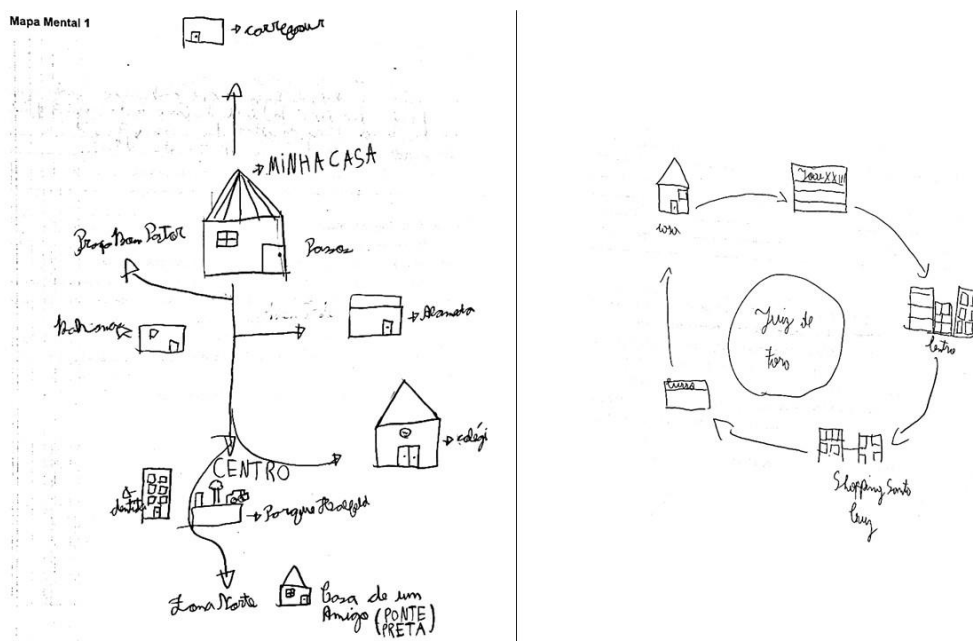 Mapa Mental 1
carrefour
MINHA CASA
Praça Bom Pastor
Passos
Alameda
colégi
CENTRO
dentista
Parque Halfeld
Zona Norte
Casa de um
Amigo (PONTE
PRETA)
João XXIII
casa
Centro
Juiz de
Fora
Curso
Shopping Santa
Cruz